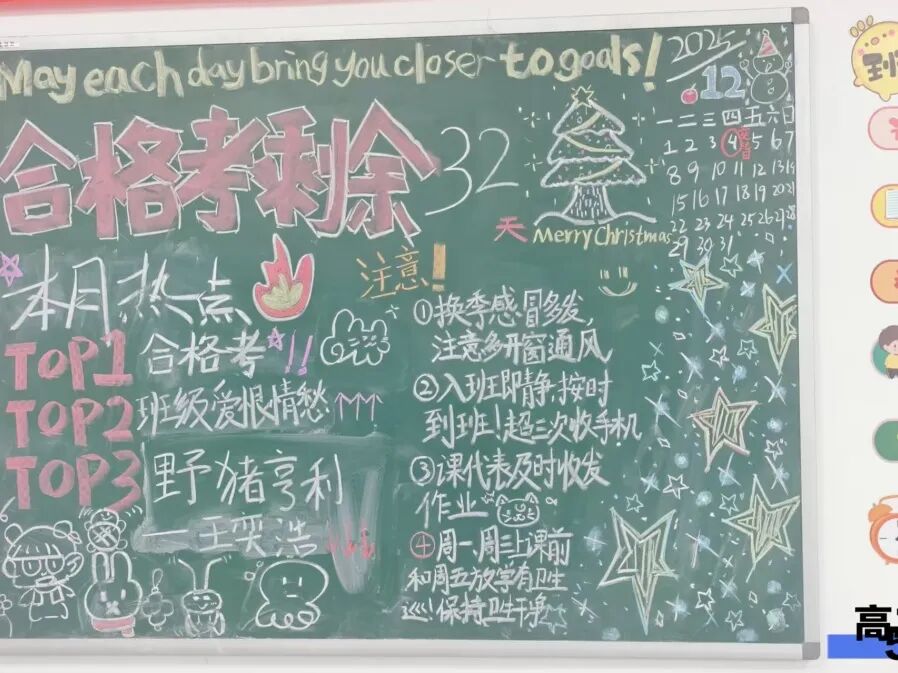 May each day bring you closer to goals!
合格考剩余32天
2025/12
一二三四五六日
1 2 3 4 5 6 7
8 9 10 11 12 13 14
15 16 17 18 19 20 21
22 23 24 25 26 27 28
29 30 31
Merry Christmas
本月热点
TOP1 合格考!!
TOP2 班级爱恨情愁↑↑↑
TOP3 野猪亨利
一王奕浩
注意!
①换季感冒多发
注意多开窗通风
②入班即静,按时
到班!超三次收手机
③课代表及时收发
作业
④周一、周三上课前
和周五放学有卫生
保持卫生干净
到
高